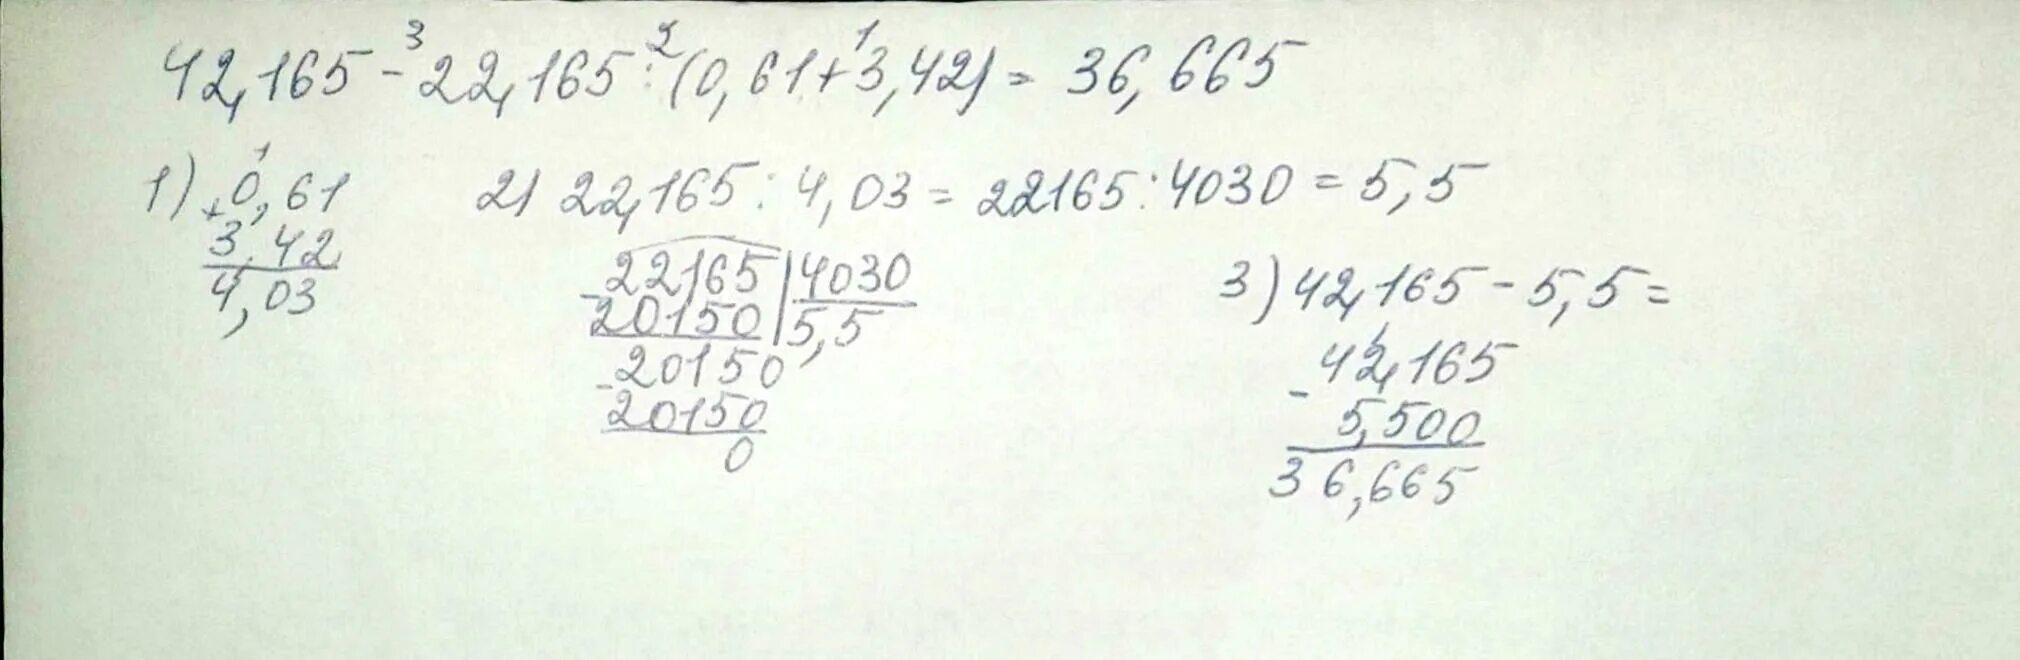 42,165 - ³ 22,165 : ² (0,61 + ¹ 3,42) = 36,665
1) + 0,61
3,42
4,03
2) 22,165 : 4,03 = 22165 : 4030 = 5,5
- 22165 | 4030
20150 | 5,5
- 20150
20150
0
3) 42,165 - 5,5 =
- 42,165
5,500
36,665